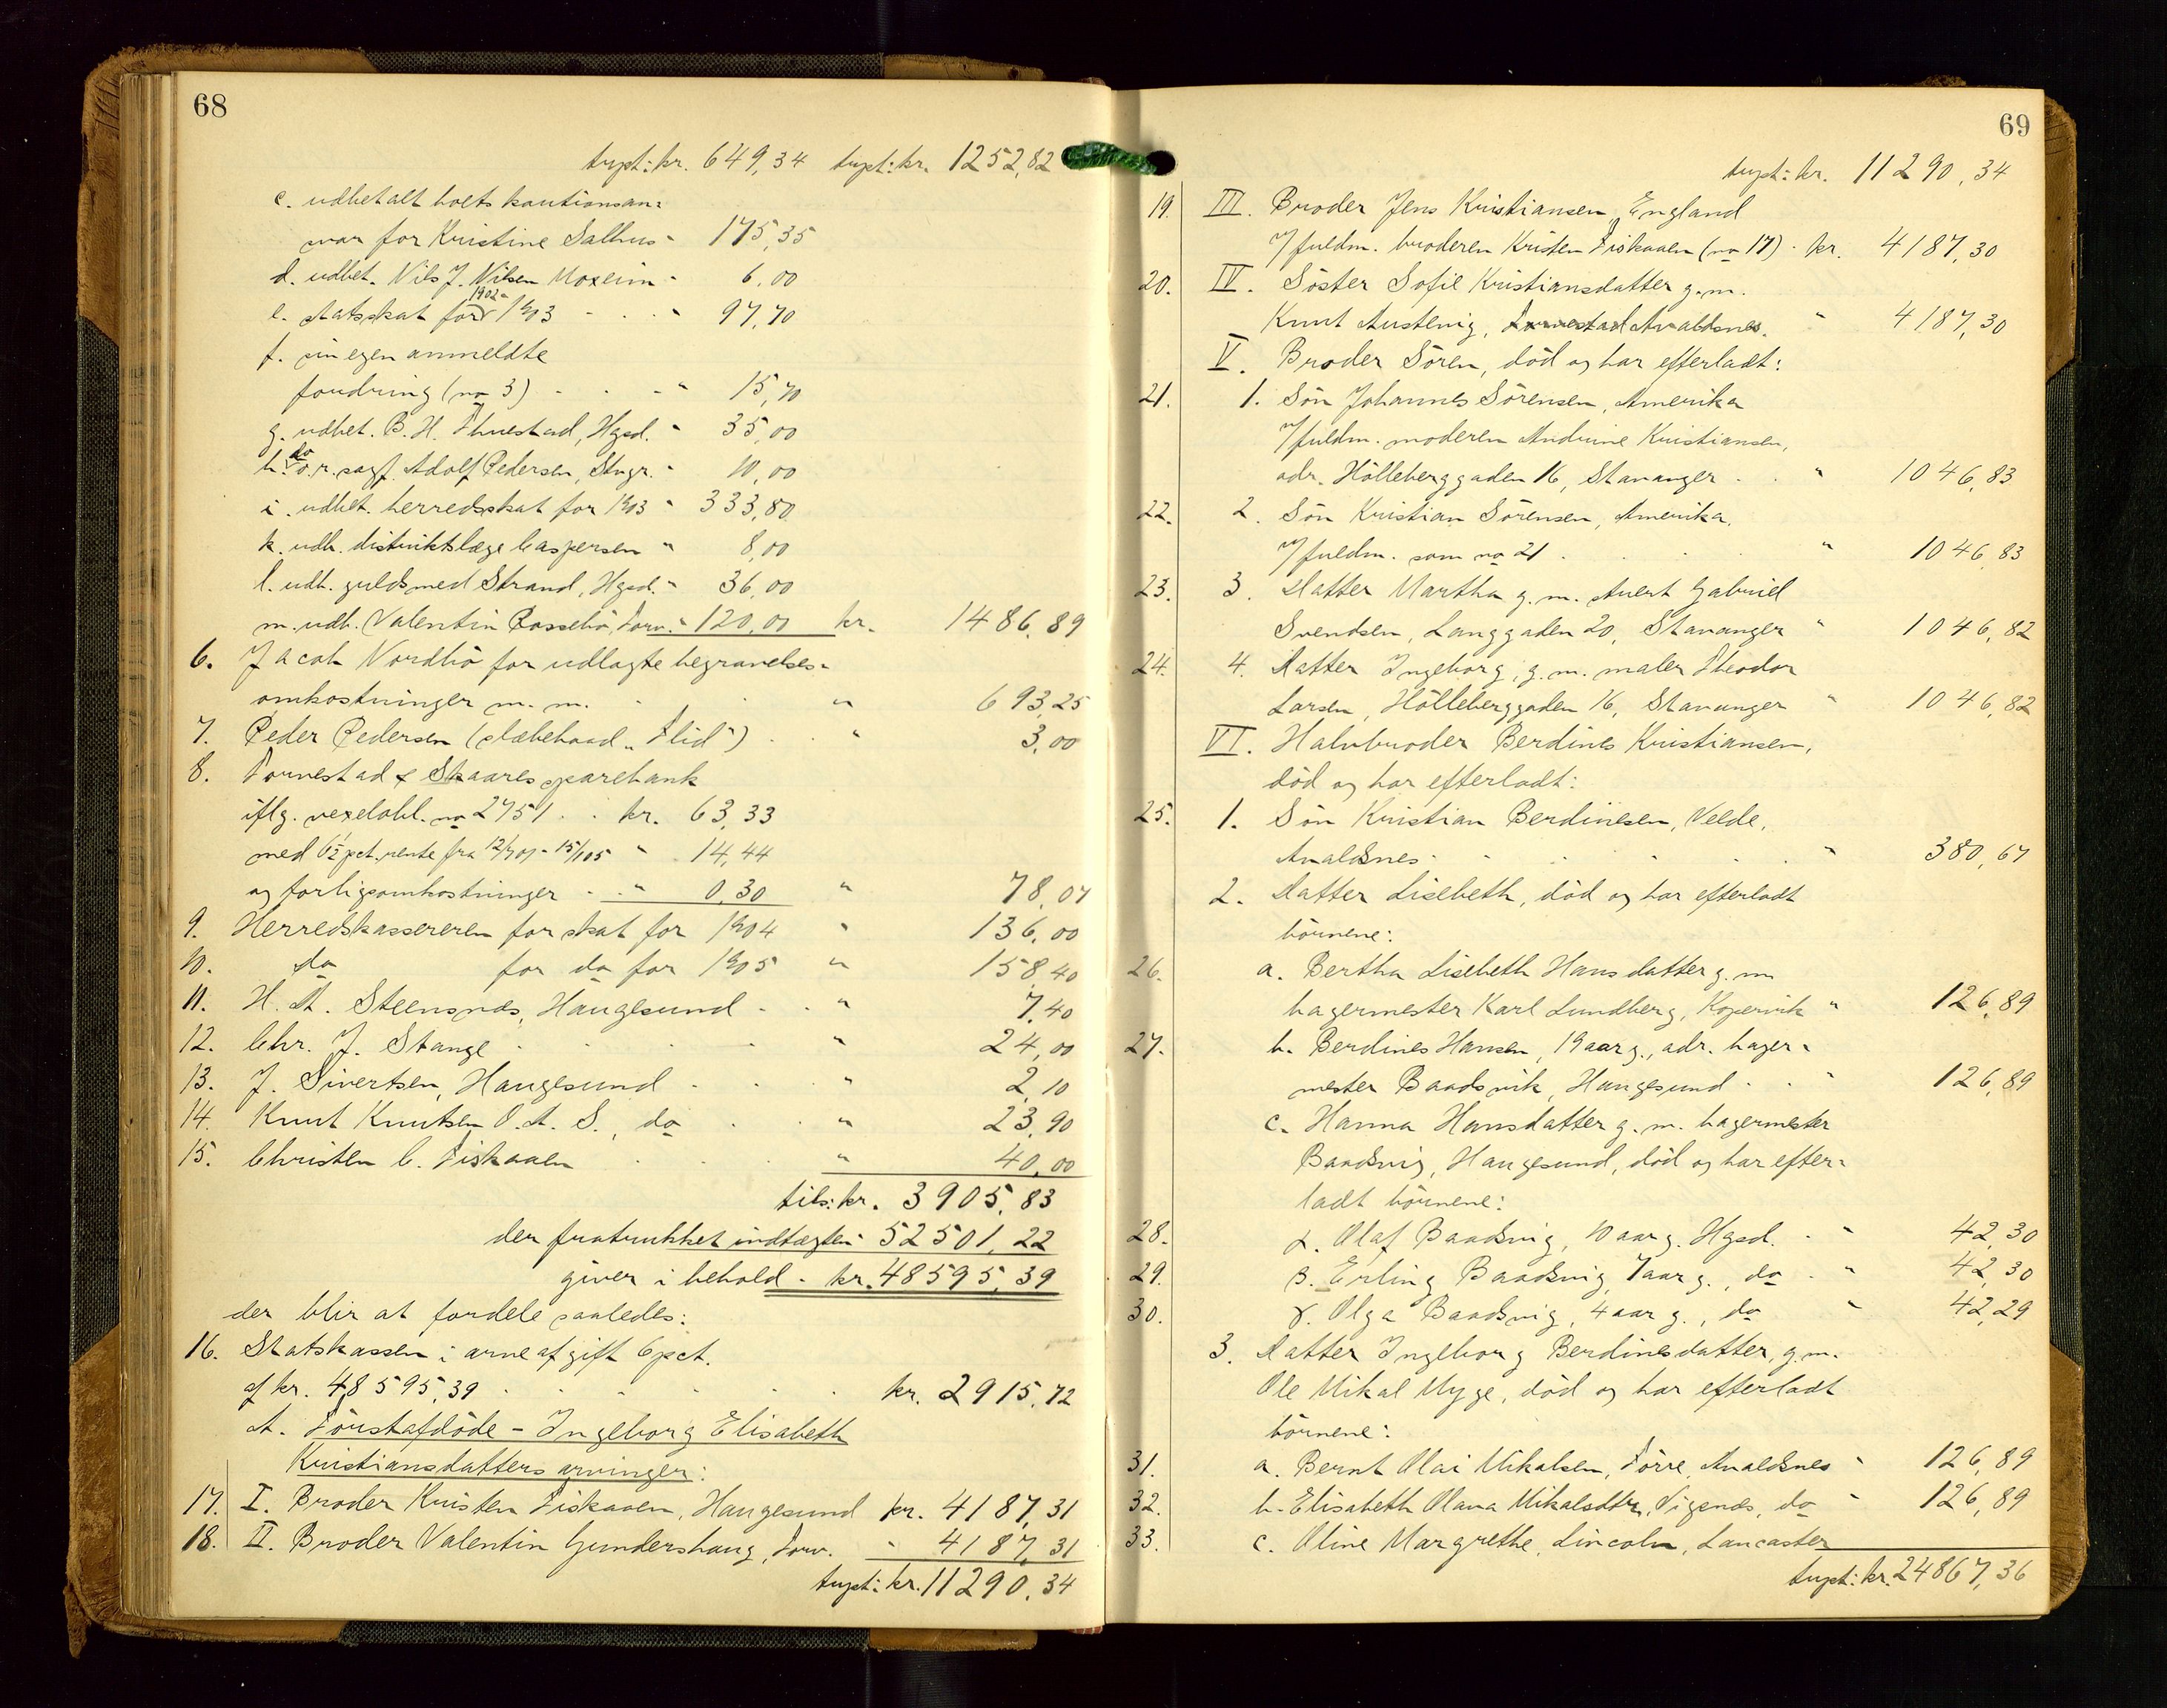 68
trspt: kr. 649,34 trspt: kr. 1252,82
c. udbetalt boets kautionsan=
svar for Kristine Salhus - 175,35
d. udbet. Nils J. Nilsen Moxeim - 6,00
e. statsskat for 1902- 1903 - - - 97,70
f. sin egen anmeldte
fordring (no 3) - - - " 15,70
g. udbet. B. H. Thuestad, Hgsd. - 35,00
h. do o.r.sagf. Adolf Pedersen, Stvgr. - 10,00
i. udbet. herredsskat for 1903 - 333,80
k. udb. distriktslæge Caspersen " 8,00
l. udb. guldsmed Strand, Hgsd. - 36,00
m. udb. Valentin Rossebö, Torv. - 120,00 kr. 1486,89
6. Jacob Nordbö for udlagte begravelses=
omkostninger m. m. - - " 693,25
7. Peder Pedersen (slæbebaad "Flid") - " 3,00
8. Torvestad & Skaares sparebank
iflg. vexelobl. no 2751 . . kr. 63,33
med 6½ pct. rente fra 12/7 01 - 15/1 05 " 14,44
og forligsomkostninger - - " 0,30 " 78,07
9. Herredskassereren for skat for 1904 " 136,00
10. do for do for 1905 " 158,40
11. H. A. Steensnæs, Haugesund - . " 7,40
12. Chr. J. Stange - - - - " 24,00
13. J. Sivertsen, Haugesund - - - " 2,10
14. Knut Knutsen O. A. S., do - - " 23,90
15. Christen C. Fiskaaen - - - " 40,00
tils: kr. 3905,83
der fratrukket indtægten - 52501,22
giver i behold - kr. 48595,39
der blir at fordele saaledes:
16. Statskassen i arveafgift 6 pct.
af kr. 48595,39 - - - - - kr. 2915,72
A. Förstafdöde - Ingeborg Elisabeth
Kristiansdatters arvinger:
17. I. Broder Kristen Fiskaaen, Haugesund kr. 4187,31
18. II. Broder Valentin Gundershaug, Torv. - 4187,31
trspt: kr. 11290,34
69
trspt: kr. 11290,34
19. III. Broder Jens Kristiansen, England
v/ fuldm. broderen Kristen Fiskaaen (no 17) . kr. 4187,30
20. IV. Söster Sofie Kristiansdatter g. m.
Knut Austevig, Torvestad Avaldsnes. " 4187,30
V. Broder Sören, död og har efterladt:
21. 1. Sön Johannes Sörensen, Amerika
v/ fuldm. moderen Andrine Kristiansen,
adr. Hölleberggaden 16, Stavanger - . " 1046,83
22. 2. Sön Kristian Sörensen, Amerika,
v/ fuldm. som no 21 . . . . " 1046,83
23. 3. Datter Martha g. m. Svert Gabriel
Svendsen, Langgaden 20, Stavanger " 1046,82
24. 4. Datter Ingeborg, g. m. maler Theodor
Larsen, Hölleberggaden 16, Stavanger " 1046,82
VI. Halvbroder Berdines Kristiansen,
död og har efterladt:
25. 1. Sön Kristian Berdinesen, Velde,
Avaldsnes - - - - - " 380,67
2. Datter Lisebeth, död og har efterladt
börnene:
26. a. Bertha Lisebeth Hansdatter g. m
bagermester Karl Lundberg, Kopervik " 126,89
27. b. Berdines Hansen, 19 aar g., adr. bager=
mester Baadsvik, Haugesund - - " 126,89
c. Hanna Hansdatter g. m. bagermester
Baadsvig, Haugesund, död og har efter=
ladt börnene:
28. α. Olaf Baadsvig, 10 aar g. Hgsd. - " 42,30
29. β. Erling Baadsvig, 7 aar g., do - " 42,30
30. γ. Olga Baadsvig, 4 aar g., do " 42,29
3. Datter Ingeborg Berdinesdatter, g. m.
Ole Mikal Myge, död og har efterladt
börnene:
31. a. Bernt Olai Mikalsen, Förre, Avaldsnes - 126,89
32. b. Elisabeth Olava Mikalsdtr, Vigenes, do - 126,89
33. c. Oline Margrethe, Lincoln, Lancaster
trspt: kr. 24867,36